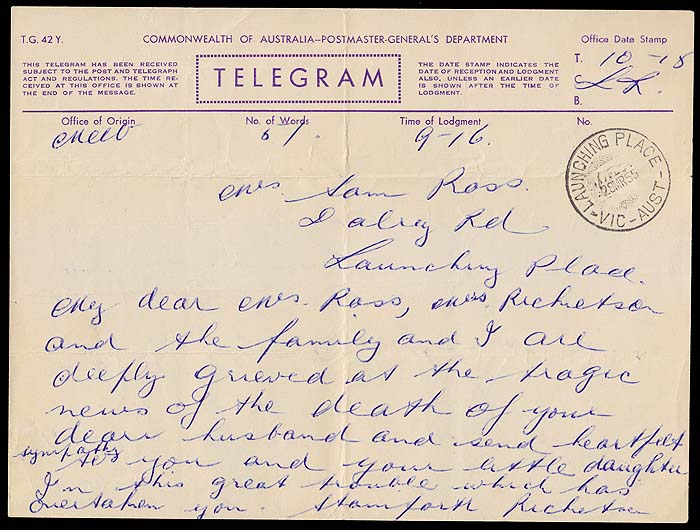 T.G. 42 Y.
COMMONWEALTH OF AUSTRALIA—POSTMASTER-GENERAL'S DEPARTMENT
Office Date Stamp
THIS TELEGRAM HAS BEEN RECEIVED
SUBJECT TO THE POST AND TELEGRAPH
ACT AND REGULATIONS. THE TIME RE-
CEIVED AT THIS OFFICE IS SHOWN AT
THE END OF THE MESSAGE.
TELEGRAM
THE DATE STAMP INDICATES THE
DATE OF RECEPTION AND LODGMENT
ALSO, UNLESS AN EARLIER DATE
IS SHOWN AFTER THE TIME OF
LODGMENT.
T. 10-18
C
B.
Office of Origin
No. of Words
Time of Lodgment
No.
Melb
61.
9-16.
LAUNCHING PLACE
VIC-AUST-
Mrs. Sam Ross.
Dalry Rd
Launching Place.
My dear Mrs. Ross, Mrs Ricketson
and the family and I are
deeply grieved at the tragic
news of the death of your
dear husband and send heartfelt
sympathy
to you and your little daughter
In this great trouble which has
overtaken you. Stamforth Ricketson